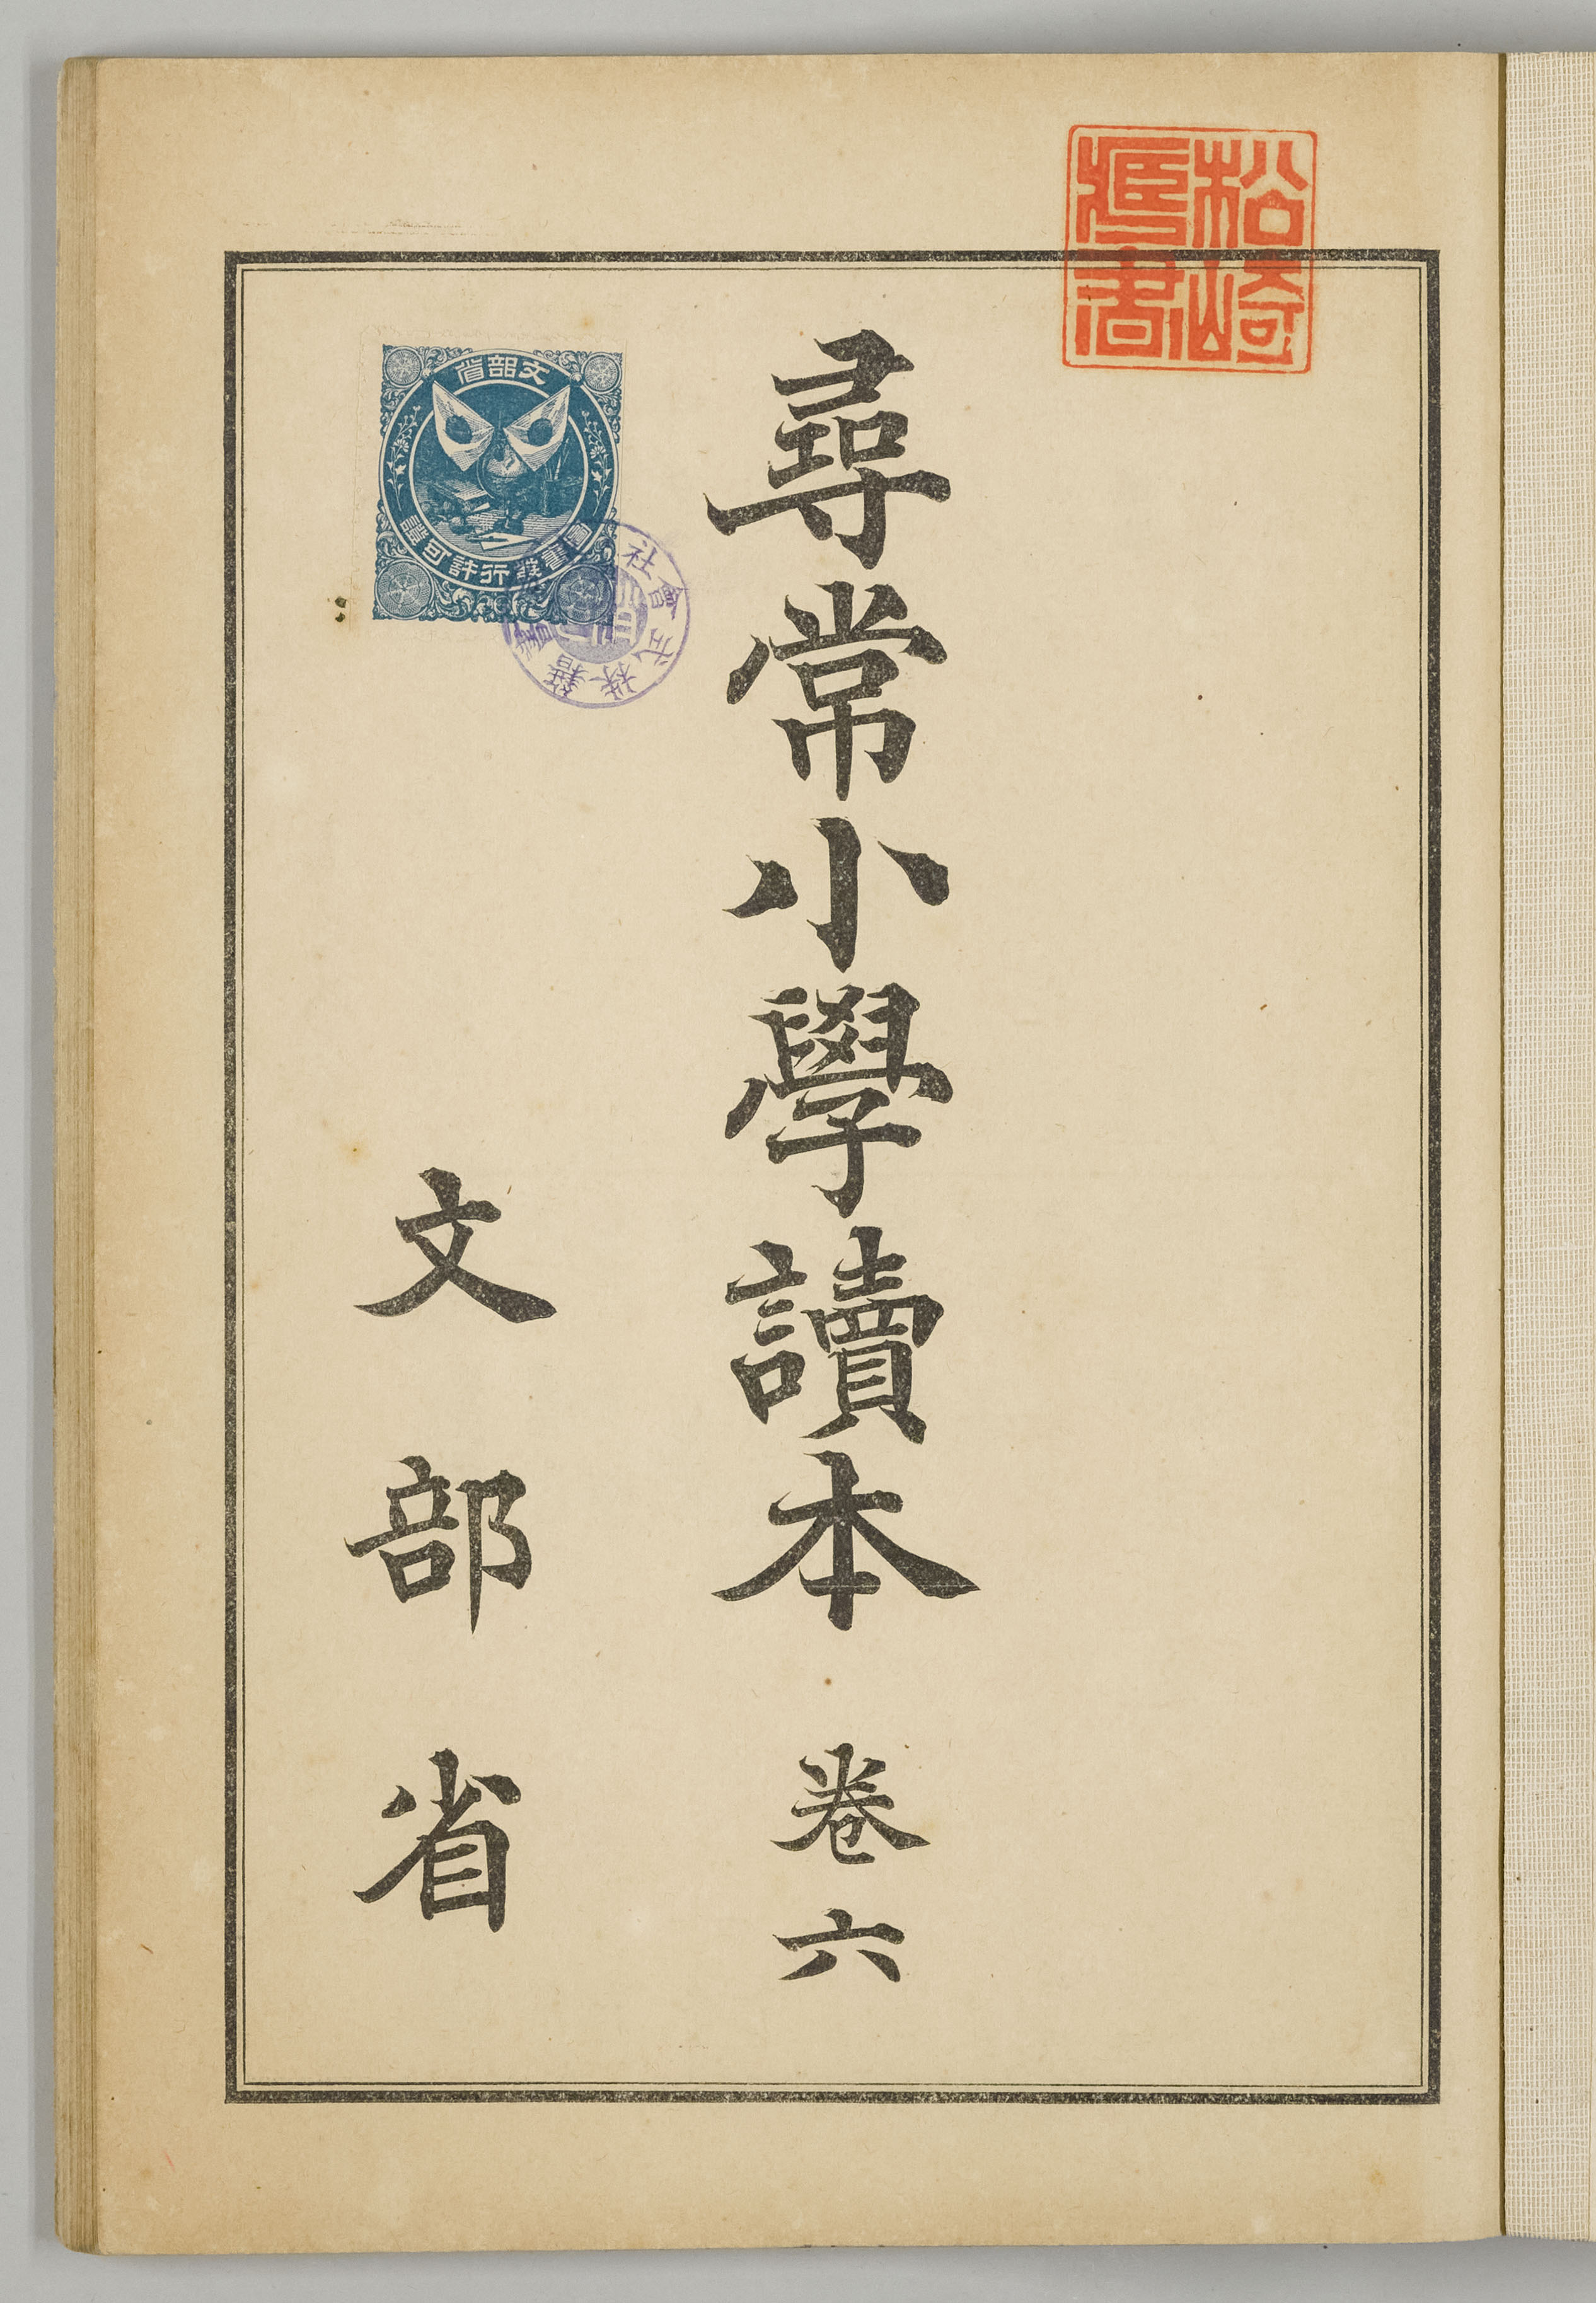 松崎
蔵書
尋常小學讀本 卷六
文部省
文部省
圖書發行許可證